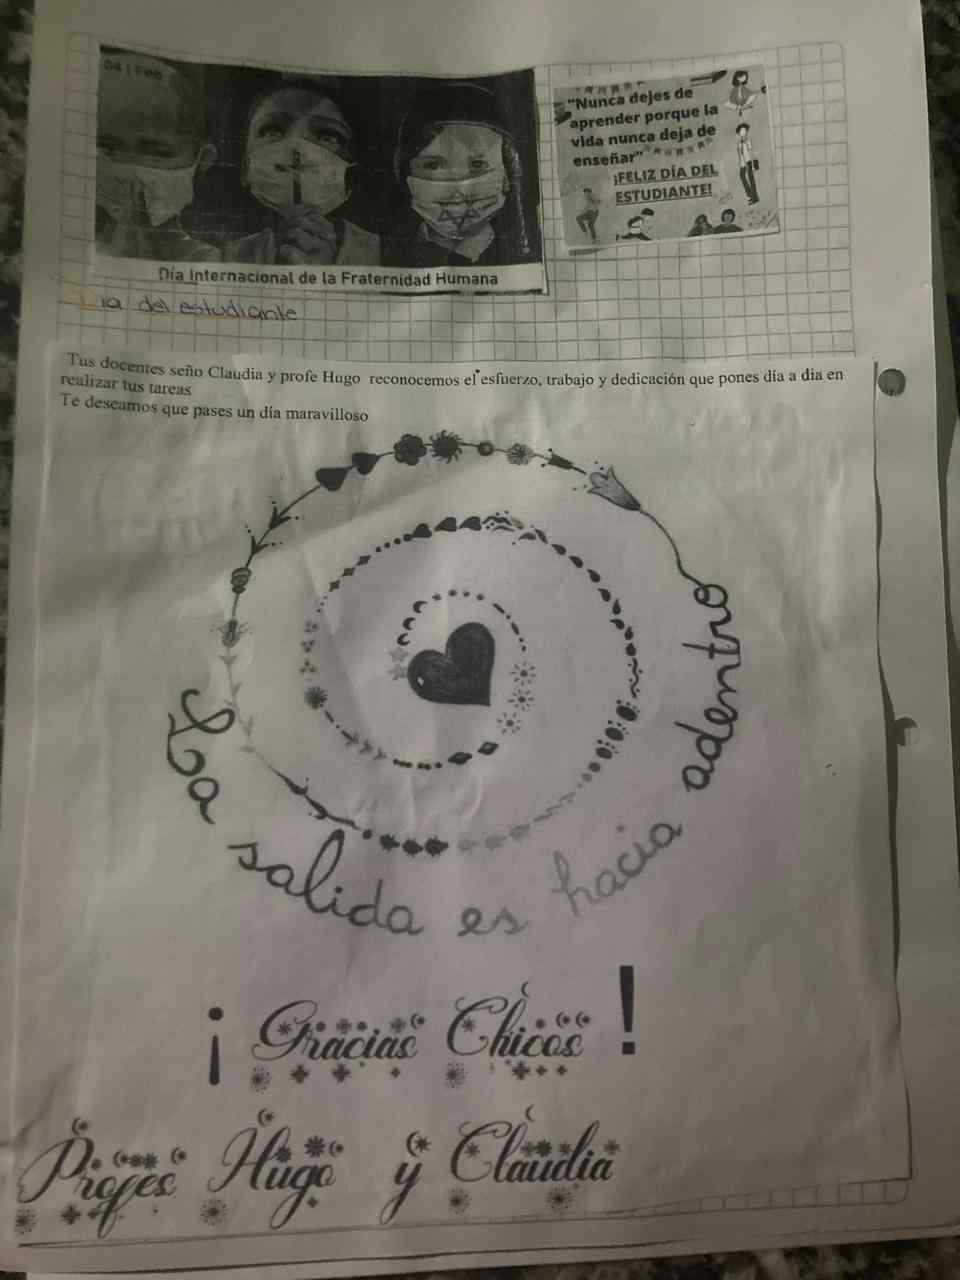 04 | Feb
Día Internacional de la Fraternidad Humana
"Nunca dejes de
aprender porque la
vida nunca deja de
enseñar"
¡FELIZ DÍA DEL
ESTUDIANTE!
Dia del estudiante
Tus docentes seño Claudia y profe Hugo reconocemos el esfuerzo, trabajo y dedicación que pones día a dia en
realizar tus tareas
Te deseamos que pases un día maravilloso
La salida es hacia adentro
¡Gracias Chicos!
Profes Hugo y Claudia